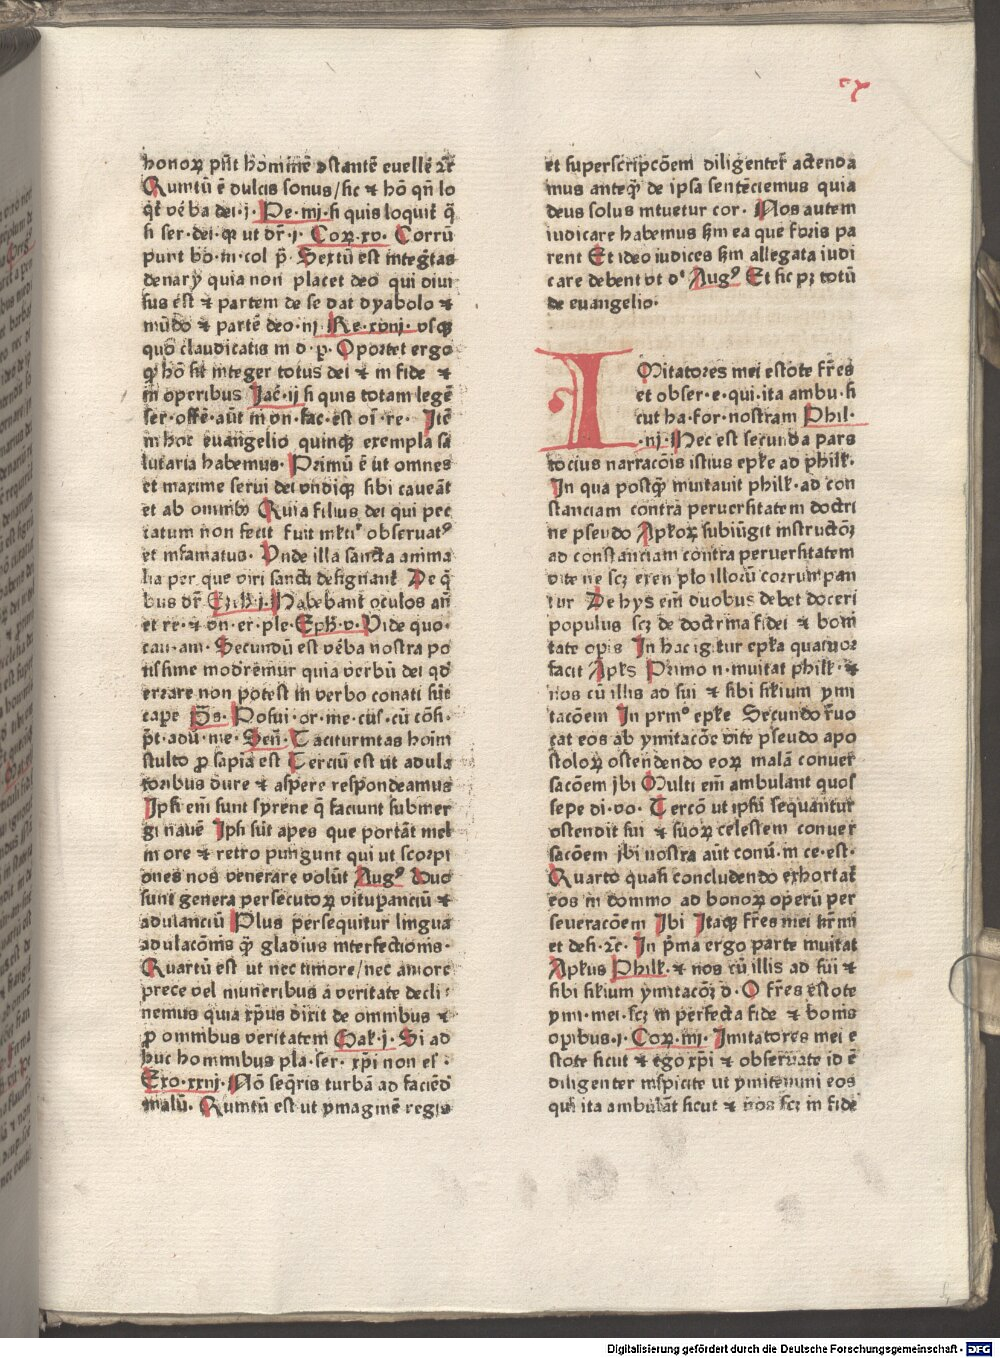 honoꝝ pn̄t hominē ꝯstantē euellē ⁊cͤ
Quintū ē dulcis sonus/sic ⁊ hō qn̄ lo
qt̄ v̄ba dei·j· Pe·iiij·si quis loquit̄ q̄
si ser·dei·ꝙ ut dr̄·j· Coꝝ·xv· Corrū
punt bo·in·col p̄· Sextū est integrͥtas
denary quia non placet deo qui diui
sus ēst ⁊ partem de se dat dyabolo ⁊
mūdo ⁊ partē deo·iij Re·xviij·vsqꝫ
quo claudicatis in d·p· Oportet ergo
ꝙ hō sit integer totus dei ⁊ in fide ⁊
in operibus Jac̄·ij si quis totam legē
ser·offē·aūt in vn·fac·est oi͞·re· Itē
in hoc euangelio quinqꝫ exempla sa
lutaria habemus· Primū ē ut omnes
et maxime serui dei vndiqꝫ sibi caueāt
et ab omnibꝫ Quia filius dei qui pec
catum non fecit fuit mltiͬ obseruatꝰ
et infamatus· Unde illa sancta anima
lia per que viri sancti designant̄ De q̄
bus dr̄ Ezech̄·j·Habebant oculos an̄
et re·⁊ vn·er·ple·Eph̄·v·Vide quo·
cau·am· Secundū est v̄ba nostra po
tissime modr̄emur quia verbū dei qd̄
errare non potest in verbo conati sūt
cape p̄s· Posui·or·me·cus̄·cū cōsi·
p̄t·adū·me·Sen̄·Taciturnitas hoīni
stulto ꝓ sapīa est Terciū est ut adula
toribus dure ⁊ aspere respondeamus
Ipsi em̄ sunt syrene q̄ faciunt submer
gi nauē Ipsi sūt apes que portāt mel
in ore ⁊ retro pungunt qui ut scorpi
ones nos venerare volūt Augꝰ Duo
sunt genera persecutoꝝ vitupanciū ⁊
adulanciū Plus persequitur lingua
adulacōnis ꝙ̄ gladius interfectionis·
Quartū est ut nec timore/nec amore
prece vel muneribus a veritate decli:
nemus quia xp̄us dixit de omnibus ⁊
ꝓ omnibus veritatem Gal̄·j·Si ad
huc hominibus pla·ser·xp̄i non es·
Exo·xxiij·Nō seqr̄is turbā ad faciēd̄
malū· Quintū est ut ymaginē regis
et superscripcōem diligenter̄ attenda
mus anteqꝫ̄ de ipsa sentēciemus quia
deus solus intuetur cor· Nos autem
iudicare habemus s̄m ea que foris pa
rent Et ideo iudices s̄m allegata iudi
care debent vt dͥ Augꝰ Et sic pꝫ totū
de euangelio·
IMitatores mei estote fr̄es
et obser·e·qui·ita ambu·si
cut ha·for·nostram Phil·
·iij·Hec est secunda pars
tocius narracōis istius epl̄e ad phil̄·
In qua postqꝫ̄ inuitauit phil̄·ad con
stanciam contra peruersitatem doctri
ne pseudo Apl̄oꝝ subiūgit instructōꝫ
ad constanciam contra peruersitatem
vite ne scꝫ exen plo illoꝝ corrumpan
tur De hys em̄ duobus debet doceri
populus scꝫ de doctrina fidei ⁊ boni
tate opis In hac ig.tur epl̄a quatuor
facit Apl̄s Primo n·inuitat phil̄·⁊
nos cū illis ad sui ⁊ sibi siłium ymi
tacōem In prinͦ epl̄e Secundo r̄uo
cat eos ab ymitacōe vite pseudo apo
stoloꝝ ostendendo eoꝝ malā conuer
sacōem ibi Multi em̄ ambulant quos
sepe di·vo· Tercō ut ipsū sequantur
ostendit sui ⁊ suoꝝ celestem conuer
sacōem ibi nostra aūt conū·in ce·est·
Quarto quasi concludendo exhortat̄
eos in domino ad bonoꝝ operū per
seueracōem Ibi Itaqꝫ fr̄es mei kr̄mi
et desi·⁊c· In p̄ma ergo parte inuitat
Apl̄us Phil̄·⁊ nos cū illis ad sui ⁊
sibi siłium ymitacōꝫ d·O fr̄es estote
ymi·mei·scꝫ in perfecta fide ⁊ bonis
opibus·i·Coꝝ·iiij· Imitatores mei e
stote sicut ⁊ ego xp̄i ⁊ obseruate id ē
diligenter inspicite ut ymitemini eos
qui ita ambulāt sicut ⁊ nos scꝫ in fide
Digitalisierung gefördert durch die Deutsche Forschungsgemeinschaft - DFG